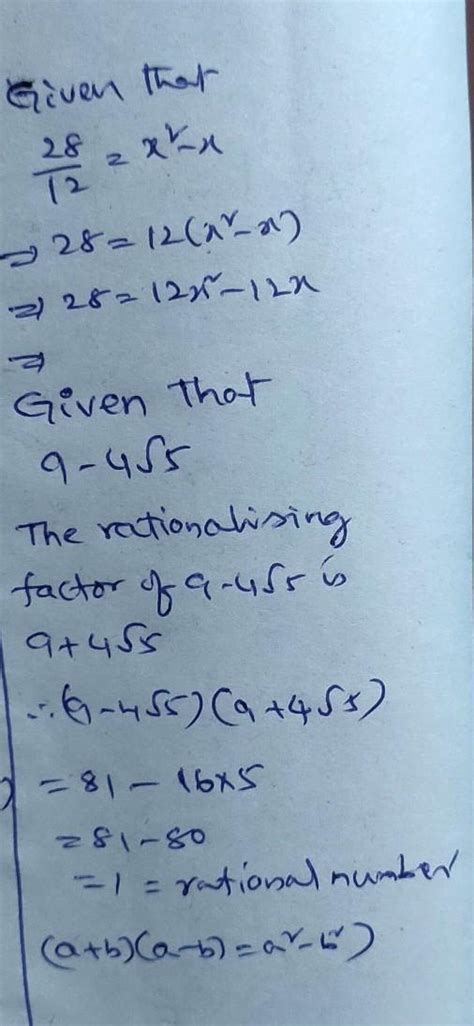 Given that
28/12 = x²-x
⇒ 28 = 12(x²-x)
⇒ 28 = 12x²-12x
⇒
Given that
9-4√5
The rationalising
factor of 9-4√5 is
9+4√5
∴ (9-4√5)(9+4√5)
= 81 - 16×5
= 81-80
= 1 = rational number
(a+b)(a-b) = a²-b²)